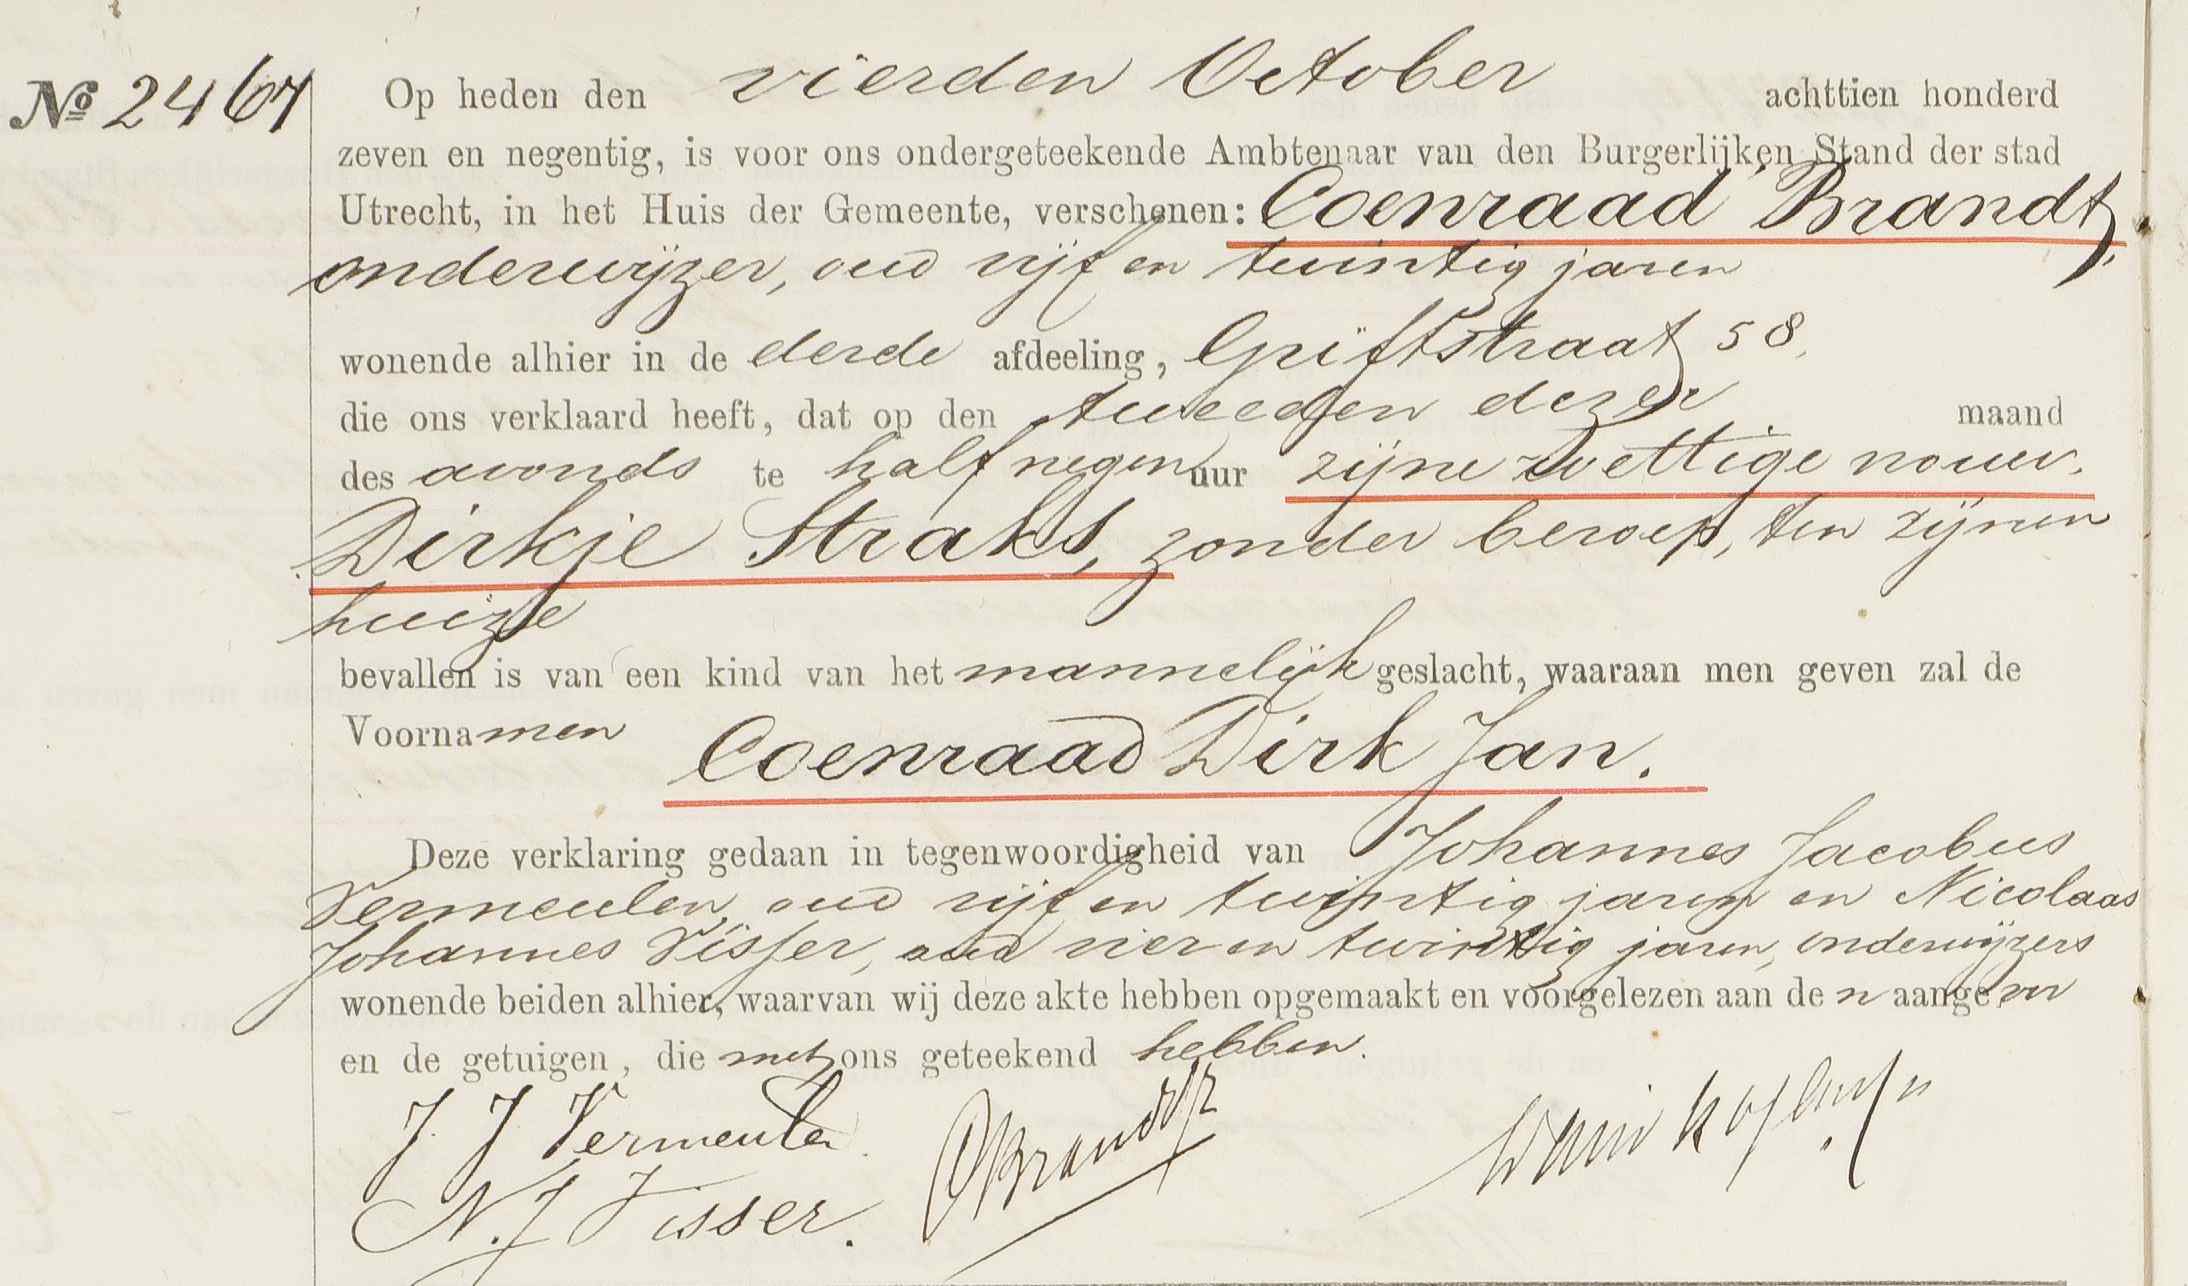 № 2467
Op heden den vierden October achttien honderd
zeven en negentig, is voor ons ondergeteekende Ambtenaar van den Burgerlijken Stand der stad
Utrecht, in het Huis der Gemeente, verschenen: Coenraad Brandt,
onderwijzer, oud vijf en twintig jaren
wonende alhier in de derde afdeeling, Griftstraat 58,
die ons verklaard heeft, dat op den tweeden dezer maand
des avonds te half negen uur zijne wettige vrouw.
Dirkje Straks, zonder beroep, ten zijnen
huize
bevallen is van een kind van het mannelijk geslacht, waaraan men geven zal de
Voornamen Coenraad Dirk Jan.
Deze verklaring gedaan in tegenwoordigheid van Johannes Jacobus
Vermeulen, oud vijf en twintig jaren en Nicolaas
Johannes Visser, oud vier en twintig jaren, onderwijzers
wonende beiden alhier, waarvan wij deze akte hebben opgemaakt en voorgelezen aan den aangever
en de getuigen, die met ons geteekend hebben.
J. J. Vermeulen CBrandt
N. J Visser.